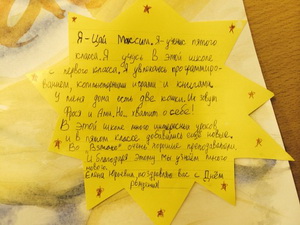 Я - Цой Максим. Я - ученик пятого
класса. Я учусь в этой школе
с первого класса. Я увлекаюсь программиро-
ванием, компьютерными играми и книгами.
У меня дома есть две кошки. Их зовут
и Но хватит о себе!
В этой школе много интересных уроков
и в пятом классе добавились ещё новые.
Во очень хорошие преподаватели.
И благодаря этому мы узнаём много
нового.
Елена Юрьевна, поздравляю вас с Днём
рождения